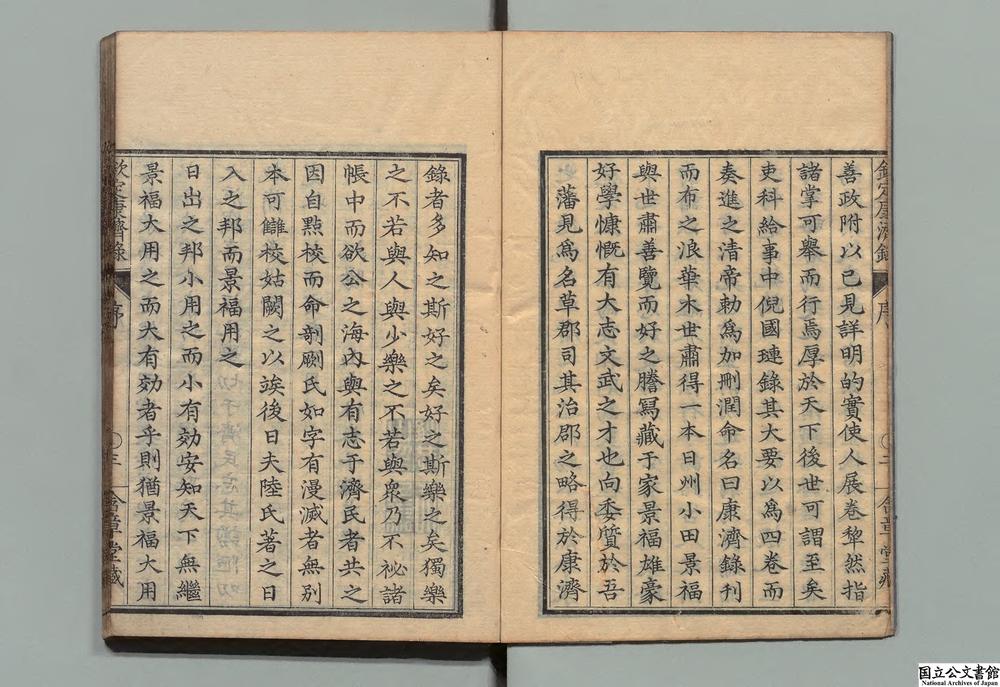 欽定康濟錄
序
〇二
含章堂藏
善政附以已見詳明的實使人展卷犂然指
諸掌可舉而行焉厚於天下後世可謂至矣
吏科給事中倪國璉錄其大要以爲四卷而
奏進之清帝勅爲加刪潤命名曰康濟錄刊
而布之浪華木世肅得一本日州小田景福
與世肅善覽而好之謄寫藏于家景福雄豪
好學慷慨有大志文武之才也向委質於吾
藩見爲名草郡司其治郡之略得於康濟
錄者多知之斯好之矣好之斯樂之矣獨樂
之不若與人與少樂之不若與衆乃不祕諸
帳中而欲公之海內與有志于濟民者共之
因自點校而命剞劂氏如字有漫滅者無別
本可讎校姑闕之以竢後日夫陸氏著之日
入之邦而景福用之
日出之邦小用之而小有効安知天下無繼
景福大用之而大有効者乎則猶景福大用
欽定康濟錄
序
〇三
含章堂藏
国立公文書館
National Archives of Japan